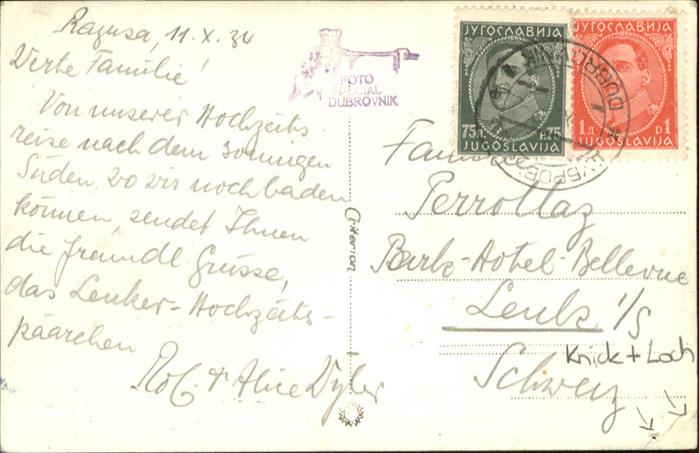 Ragusa, 11.X.34
Werte Familie!
Von unserer Hochzeits
reise nach dem sonnigen
Süden, wo wir noch baden
können, sendet Ihnen
die freundl Grüsse,
das Lenker-Hochzeits-
päärchen
Rob. & Alice Wyler
FOTO
SPECIAL
DUBROVNIK
Criterion
ЈУГОСЛАВИЈА
75п. P.75
JUGOSLAVIJA
ЈУГОСЛАВИЈА
1д D1
JUGOSLAVIJA
Perrollaz
Park-Hotel-Bellevue
Lenk i/S
Schweiz
Knick + Loch